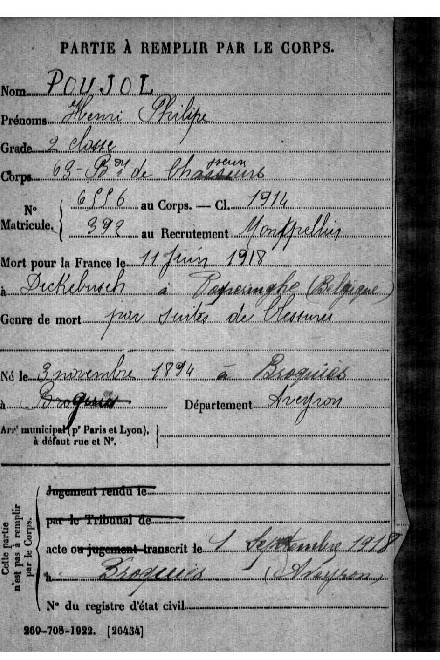 PARTIE À REMPLIR PAR LE CORPS.
Nom POUJOL
Prénoms Henri Philipe
Grade 2 classe
Corps 69 - Bon de Chasseurs
N° Matricule. 6996 au Corps. — Cl. 1914
392 au Recrutement Montpellier
Mort pour la France le 11 Juin 1918
à Dickebusch à Poperinghe (Belgique)
Genre de mort par suites de blessures
Né le 3 novembre 1894 à Broquiès
à Broquiès Département Aveyron
Arrt municipal (pr Paris et Lyon),
à défaut rue et N°.
Cette partie n'est pas à remplir par le Corps.
Jugement rendu le
par le Tribunal de
acte ou jugement transcrit le 1 Septembre 1918
à Broquiès (Aveyron)
N° du registre d'état civil
269-708-1922. [26434]